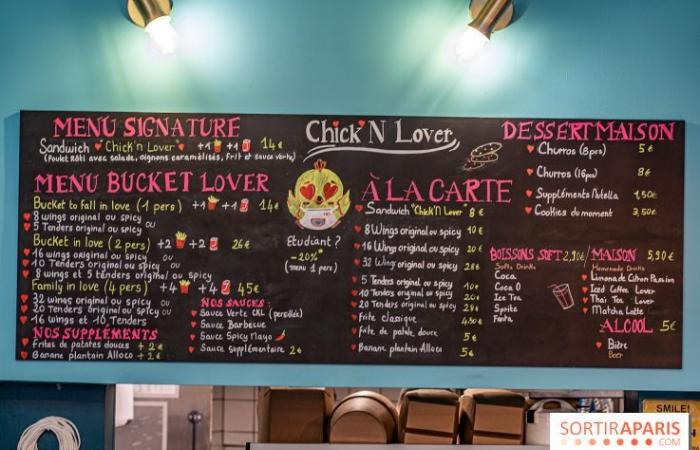 MENU SIGNATURE
Sandwich "Chick'n Lover" +1 +1 14€
(Poulet Rôti avec salade, oignons caramélisés, frit et sauce verte)
MENU BUCKET LOVER
Bucket to fall in love (1 pers) +1 +1 14€
8 wings original ou spicy ou
5 Tenders original ou spicy
Bucket in love (2 pers) +2 +2 26€
16 wings original ou spicy ou
10 Tenders original ou spicy ou
8 wings et 5 tenders original ou spicy
Family in love (4 pers) +4 +4 45€
32 wings original ou spicy ou
20 Tenders original ou spicy ou
16 wings et 10 Tenders
NOS SUPPLÉMENTS
Frites de patates douces + 2€
Banane plantain Alloco + 2€
NOS SAUCES:
Sauce Verte CKL (persillée)
Sauce Barbecue
Sauce Spicy Mayo
Sauce supplémentaire 2€
Chick'N Lover
Etudiant?
-20%
(menu 1 pers)
À LA CARTE
Sandwich "Chick'n Lover" 8€
8 Wings original ou spicy 10€
16 Wings original ou spicy 20€
32 Wings original ou spicy
5 Tenders original ou spicy 10€
10 Tenders original ou spicy 20€
20 Tenders original ou spicy
Frite classique 4,50€
Frite de patate douce 5€
Banane plantain Alloco 5€
DESSERT MAISON
Churros (8pcs) 5€
Churros (16pcs) 8€
Suppléments Nutella 1,50€
Cookies du moment 3,50€
BOISSONS SOFT 2,90€ / MAISON 5,90€
Softs Drinks
Coca
Coca 0
Ice Tea
Sprite
Fanta
Homemade Drinks
Limonade de Citron Passion
Iced Coffee Lover
Thaï Tea Lover
Matcha Latte
ALCOOL 5€
Bière
Beer
SMILE!
SORTIRAPARIS
.COM